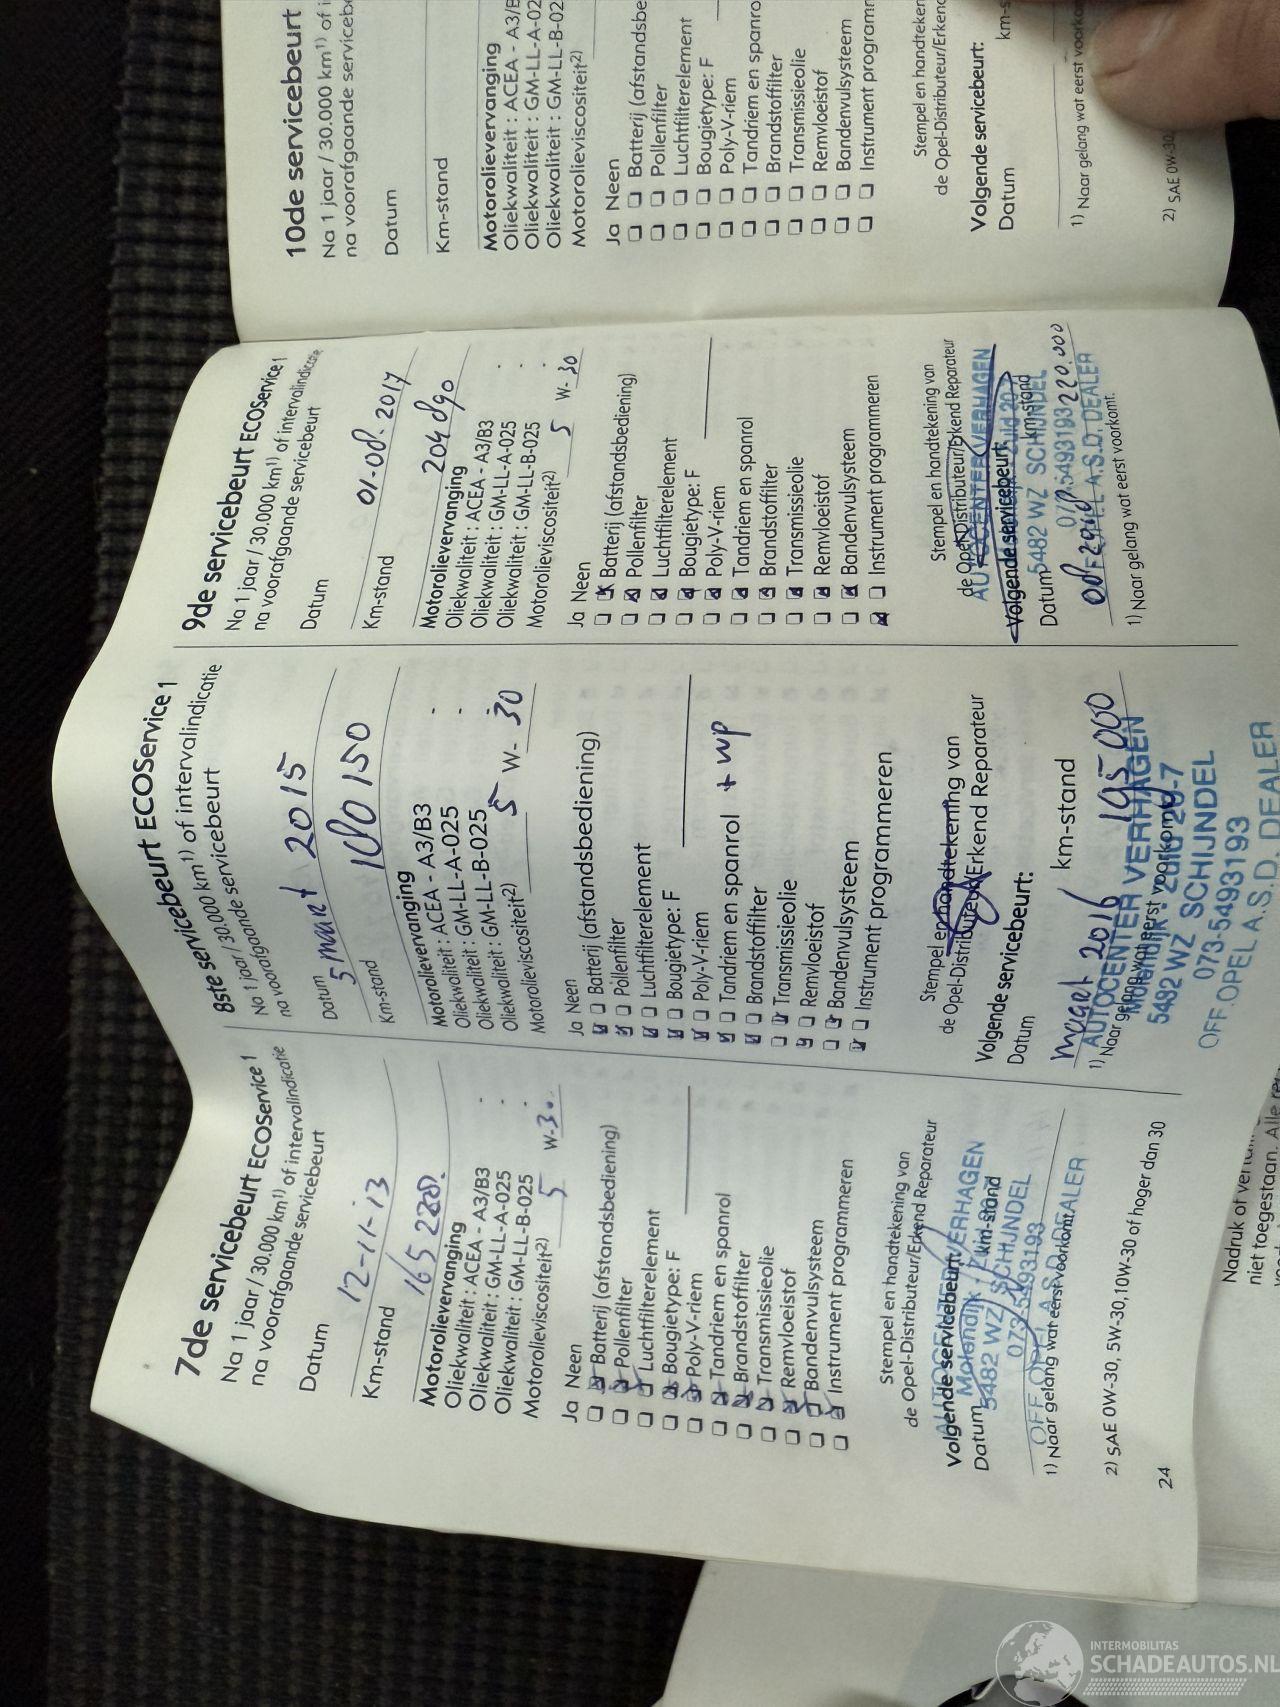 7de servicebeurt ECOService 1
Na 1 jaar / 30.000 km¹⁾ of intervalindicatie
na voorafgaande servicebeurt
Datum
12-11-13
Km-stand
165 228.
Motorolievervanging
Oliekwaliteit : ACEA - A3/B3
Oliekwaliteit : GM-LL-A-025
Oliekwaliteit : GM-LL-B-025
Motorolieviscositeit²⁾ 5 W- 30
Ja Neen
Batterij (afstandsbediening)
Pollenfilter
Luchtfilterelement
Bougietype: F
Poly-V-riem
Tandriem en spanrol
Brandstoffilter
Transmissieolie
Remvloeistof
Bandenvulsysteem
Instrument programmeren
Stempel en handtekening van
de Opel-Distributeur/Erkend Reparateur
AUTOCENTER VERHAGEN
Volgende servicebeurt:
Molendijk - Zuid 20-7
Datum km-stand
5482 WZ SCHIJNDEL
073-5493193
OFF. OPEL A.S.D. DEALER
1) Naar gelang wat eerst voorkomt.
2) SAE 0W-30, 5W-30, 10W-30 of hoger dan 30
24
8ste servicebeurt ECOService 1
Na 1 jaar / 30.000 km¹⁾ of intervalindicatie
na voorafgaande servicebeurt
Datum
5 maart 2015
Km-stand
180 150
Motorolievervanging
Oliekwaliteit : ACEA - A3/B3
Oliekwaliteit : GM-LL-A-025
Oliekwaliteit : GM-LL-B-025
Motorolieviscositeit²⁾ 5 W- 30
Ja Neen
Batterij (afstandsbediening)
Pollenfilter
Luchtfilterelement
Bougietype: F
Poly-V-riem
Tandriem en spanrol + wp
Brandstoffilter
Transmissieolie
Remvloeistof
Bandenvulsysteem
Instrument programmeren
Stempel en handtekening van
de Opel-Distributeur/Erkend Reparateur
Volgende servicebeurt:
Datum km-stand
maart 2016 195 000
1) Naar gelang wat eerst voorkomt.
AUTOCENTER VERHAGEN
Molendijk - Zuid 20-7
5482 WZ SCHIJNDEL
073-5493193
OFF. OPEL A.S.D. DEALER
9de servicebeurt ECOService 1
Na 1 jaar / 30.000 km¹⁾ of intervalindicatie
na voorafgaande servicebeurt
Datum
01-08-2017
Km-stand
204 890
Motorolievervanging
Oliekwaliteit : ACEA - A3/B3
Oliekwaliteit : GM-LL-A-025
Oliekwaliteit : GM-LL-B-025
Motorolieviscositeit²⁾ 5 W- 30
Ja Neen
Batterij (afstandsbediening)
Pollenfilter
Luchtfilterelement
Bougietype: F
Poly-V-riem
Tandriem en spanrol
Brandstoffilter
Transmissieolie
Remvloeistof
Bandenvulsysteem
Instrument programmeren
Stempel en handtekening van
de Opel-Distributeur/Erkend Reparateur
AUTOCENTER VERHAGEN
Volgende servicebeurt:
Molendijk - Zuid 20-7
Datum km-stand
5482 WZ SCHIJNDEL
073-5493193
220.000
OFF. OPEL A.S.D. DEALER
1) Naar gelang wat eerst voorkomt.
10de servicebeurt
Na 1 jaar / 30.000 km¹⁾ of i
na voorafgaande servicebe
Datum
Km-stand
Motorolievervanging
Oliekwaliteit : ACEA - A3/B
Oliekwaliteit : GM-LL-A-02
Oliekwaliteit : GM-LL-B-02
Motorolieviscositeit²⁾
Ja Neen
Batterij (afstandsbe
Pollenfilter
Luchtfilterelement
Bougietype: F
Poly-V-riem
Tandriem en spanro
Brandstoffilter
Transmissieolie
Remvloeistof
Bandenvulsysteem
Instrument programm
Stempel en handteken
de Opel-Distributeur/Erkend
Volgende servicebeurt:
Datum km-s
1) Naar gelang wat eerst voorkom
2) SAE 0W-30,
Nadruk of
niet toegestaan. Alle
INTERMOBILITAS
SCHADEAUTOS.NL